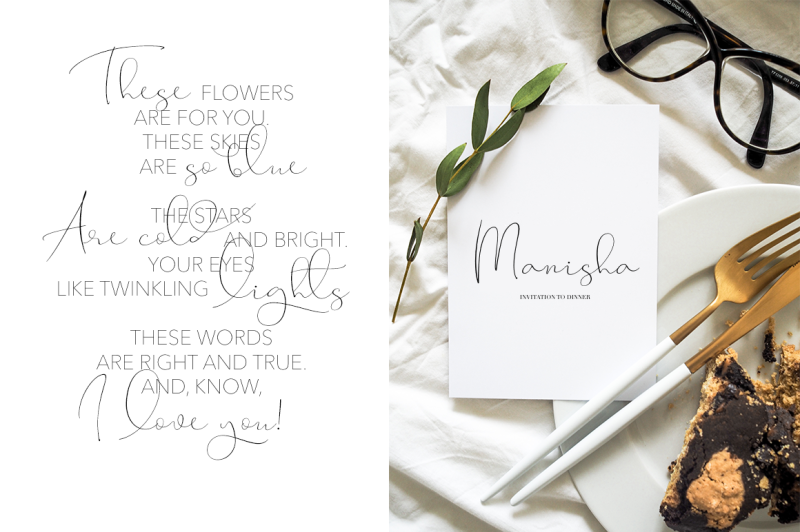 These FLOWERS
ARE FOR YOU.
THESE SKIES
ARE so blue
THE STARS
Are cold AND BRIGHT.
YOUR EYES
LIKE TWINKLING lights
THESE WORDS
ARE RIGHT AND TRUE.
AND, KNOW,
I love you!
Manisha
INVITATION TO DINNER